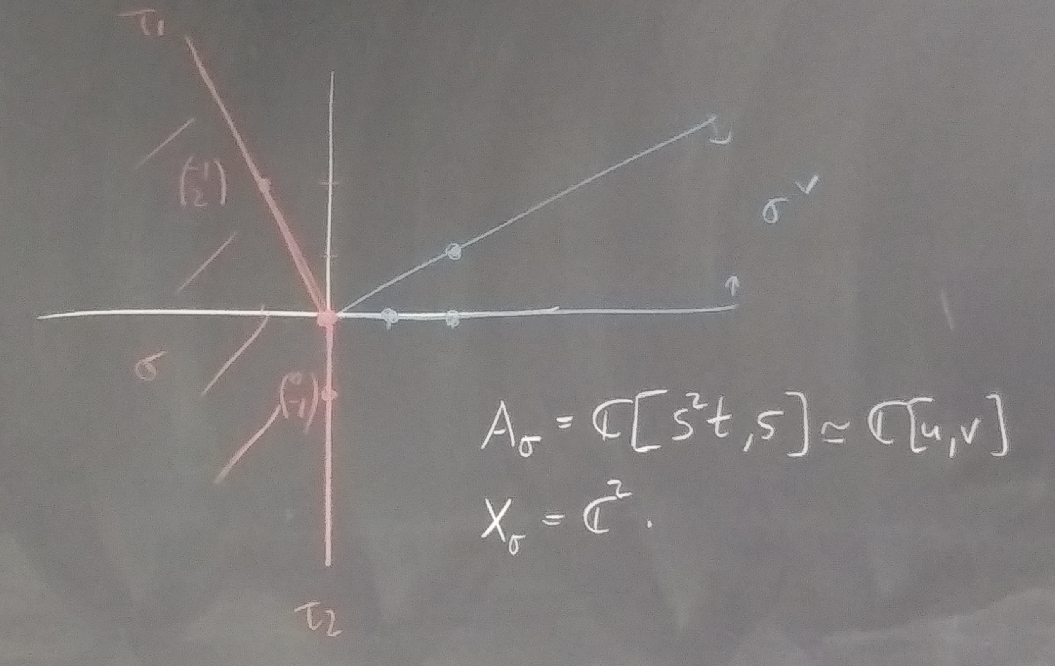 τ₁
(-1 2)
σ^∨
σ
(0 -1)
A_σ = ℂ[s²t, s] ≃ ℂ[u, v]
X_σ = ℂ².
τ₂